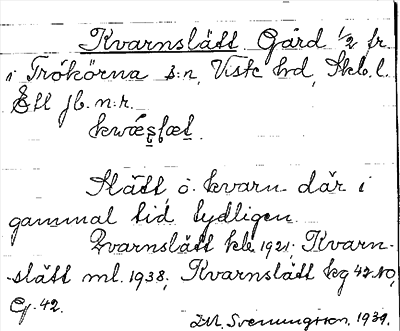 Kvarnslätt Gård 1/2 fr.
i Trökörna s:n, Viste hd, Skb. l.
Ett jb. n:r.
Slätt o. kvarn där i
gammal tid tydligen.
Qvarnslätt kle 1921; Kvarn-
slätt ml. 1938, Kvarnslätt kg 42 NO,
Gj. 42.
Svenungsson, 1939.